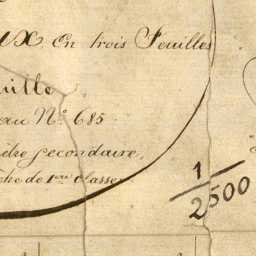 ux En trois Feuilles
uille
au Nº 685
secondaire,
che de 1ère classe
1/2500